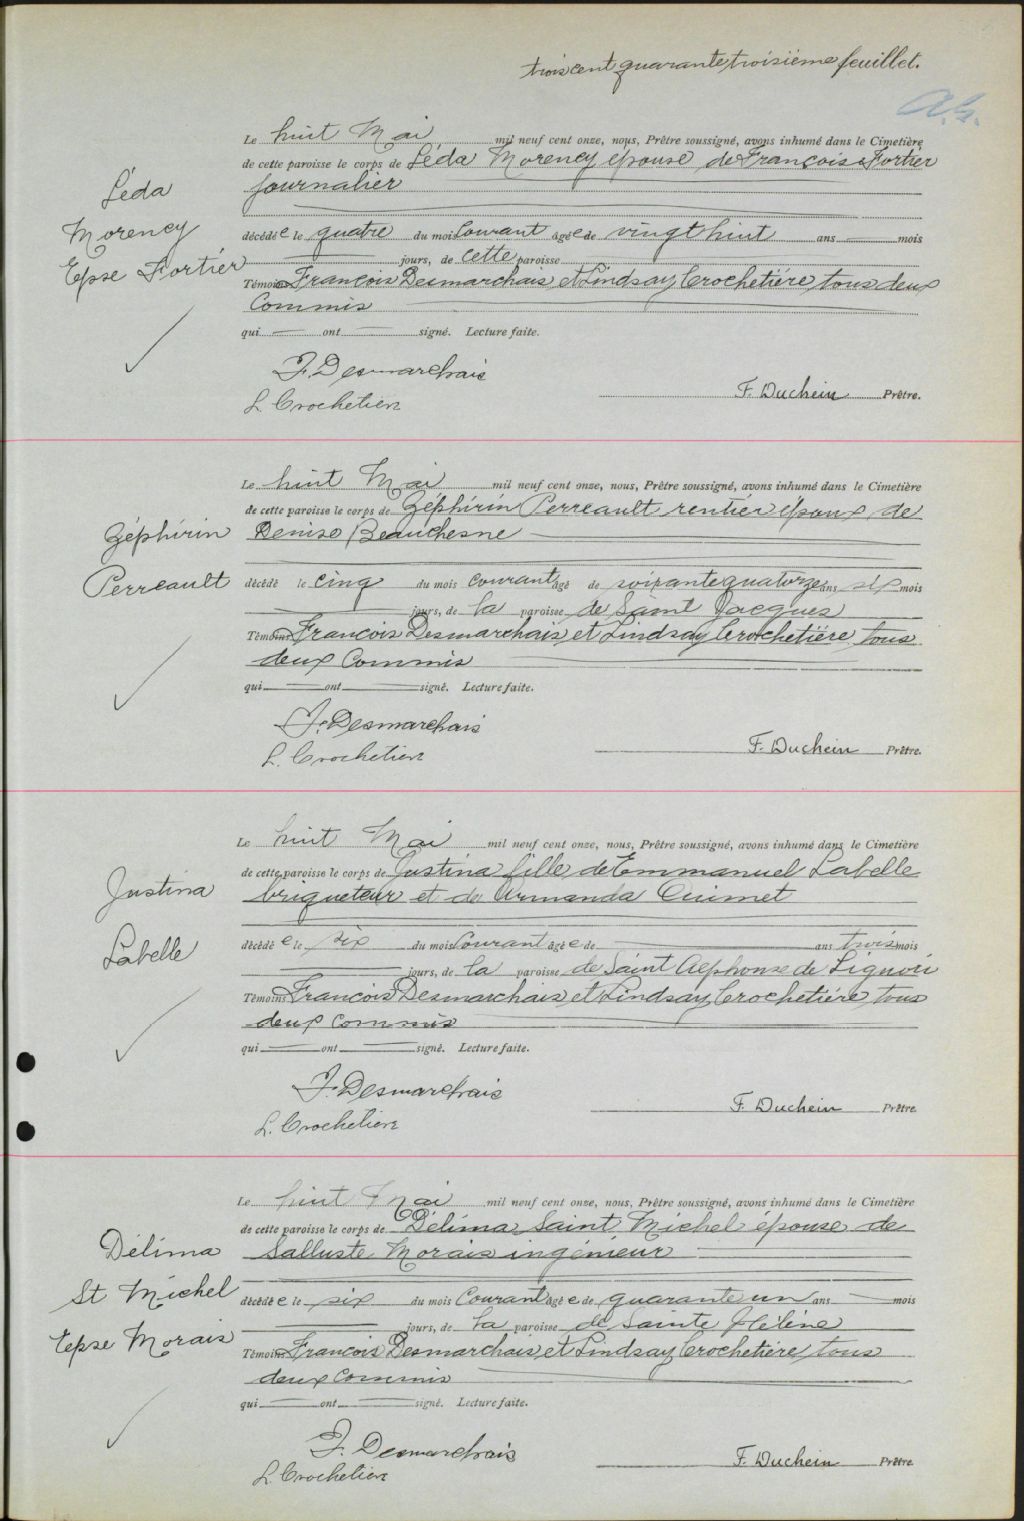 trois cent quarante troisième feuillet.
Le huit Mai mil neuf cent onze, nous, Prêtre soussigné, avons inhumé dans le Cimetière
de cette paroisse le corps de Léda Morency épouse de François Fortier
journalier
Léda
Morency
Epse Fortier
décédée le quatre du mois Courant âgée de vingt huit ans mois
jours, de cette paroisse
Témoins François Desmarchais et Lindsay Crochetière, tous deux
Commis
qui ont signé. Lecture faite.
F. Desmarchais
L. Crochetière
F. Duchein Prêtre.
Le huit Mai mil neuf cent onze, nous, Prêtre soussigné, avons inhumé dans le Cimetière
de cette paroisse le corps de Zéphirin Perreault rentier époux de
Denise Beauchesne
Zéphirin
Perreault
décédé le cinq du mois courant âgé de soixante quatorze ans six mois
jours, de la paroisse de Saint Jacques
Témoins François Desmarchais et Lindsay Crochetière, tous
deux Commis
qui ont signé. Lecture faite.
F. Desmarchais
L. Crochetière
F. Duchein Prêtre.
Le huit Mai mil neuf cent onze, nous, Prêtre soussigné, avons inhumé dans le Cimetière
de cette paroisse le corps de Justina fille de Emmanuel Labelle
briqueteur et de Armanda Ouimet
Justina
Labelle
décédée le six du mois Courant âgée de ans trois mois
jours, de la paroisse de Saint Alphonse de Liguori
Témoins François Desmarchais et Lindsay Crochetière, tous
deux commis
qui ont signé. Lecture faite.
F. Desmarchais
L. Crochetière
F. Duchein Prêtre.
Le huit Mai mil neuf cent onze, nous, Prêtre soussigné, avons inhumé dans le Cimetière
de cette paroisse le corps de Délima Saint Michel épouse de
Salluste Morais ingénieur
Délima
St Michel
Epse Morais
décédée le six du mois Courant âgée de quarante un ans mois
jours, de la paroisse de Sainte Hélène
Témoins François Desmarchais et Lindsay Crochetière, tous
deux commis
qui ont signé. Lecture faite.
F. Desmarchais
L. Crochetière
F. Duchein Prêtre.